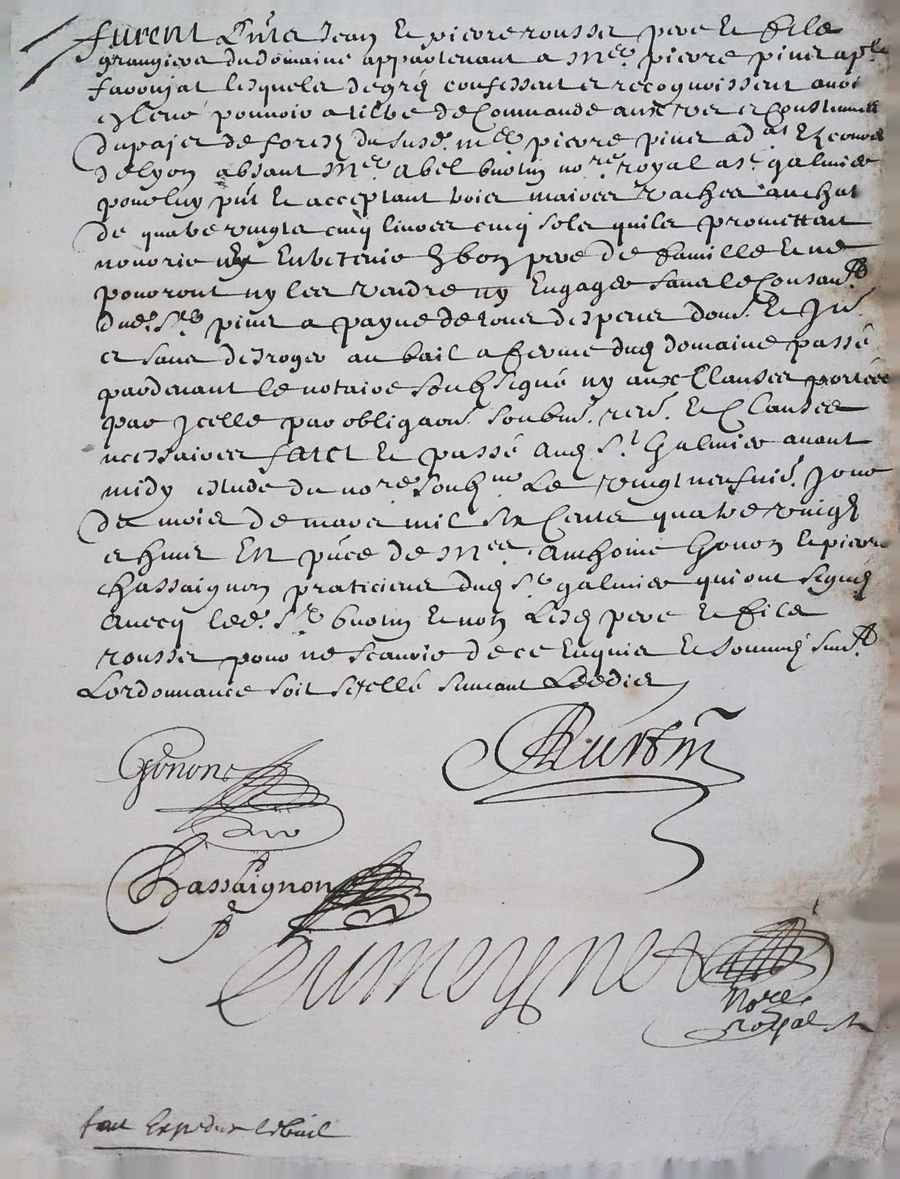 furent p̃nts Jean et pierre rousset pere et fils
grangiers du domaine appartenant a Mre pierre piner apl^e
lesquels de gré confessent et recognoissent avoir
et pouvoir a tiltre de Commande aux vers et Coustumes
du pajes de forest du susd. mre pierre piner ad^at
de lyon absant Mre Abel buotin no^re royal a s^t galmier
pour luy p̃nt et acceptant trois maires vaches au chat
de quatre vingts cinq livres cinq sols quils promettent
nourrir et Entretenir En bon pere de famille et ne
pouront ny les vendre ny Engager sans le Consan^t
dud. S^r piner a payne de tous despens dom. et Jn^t.
et sans desroger au bail a ferme dud domaine passé
pardevant le notaire Soubsigné ny aux Clauses portées
par Jcelle par obligaon. soubm. ren. et Clauses
necessaires faict et passé aud S^t Galmier avant
midy estude du no^re soubsne Le vingt neufvie. Jour
de mois de mars mil six Cents quatre vingt
et huict En p̃nce de Mes Anthoine Gonon et pierre
Chassaignon praticiens dud S^t galmier qui ont signé
Avecq led. S^r buotin et non Lesd pere et fils
rousset pour ne scavoir de ce Enquis et Sommé suiv^t
Lordonnance soit scellé suivant Leedict
Gonon
ABuotin
Chassaignon
Dumeynet
Nore
royal
fait Expedier le bail